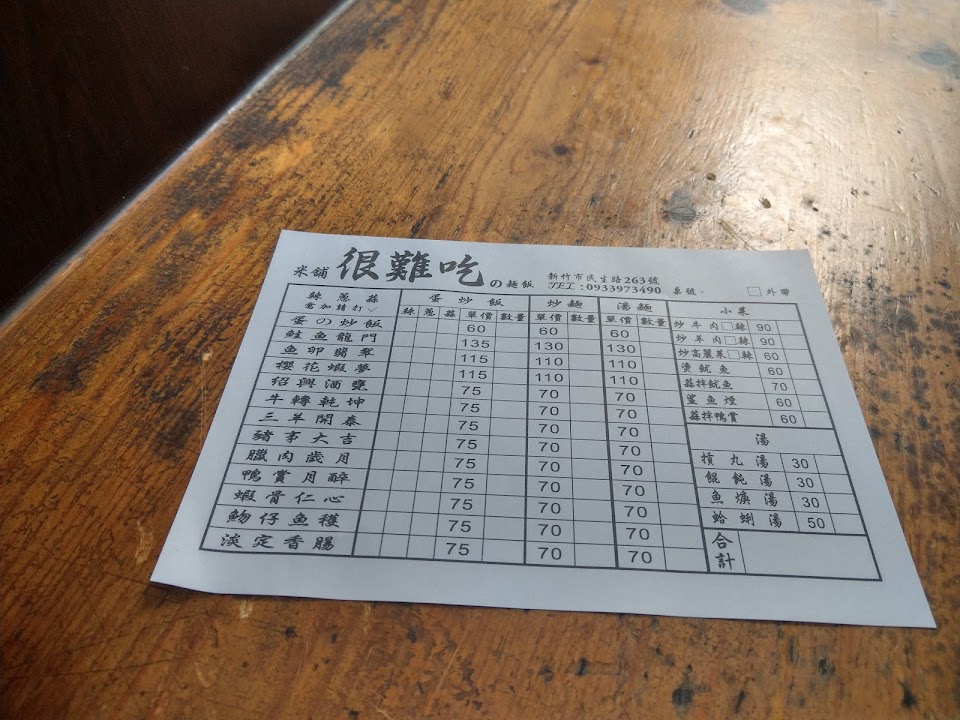 米舖 很難吃の麵飯
新竹市民生路263號
TEL:0933973490 桌號: □外帶
辣蔥蒜 蛋炒飯 炒麵 湯麵 小菜
意加請打✓ 辣 蔥 蒜 單價 數量 單價 數量 單價 數量
蛋の炒飯 60 60 60
鮭魚龍門 135 130 130
魚卵翡翠 115 110 110
櫻花蝦夢 115 110 110
紹興酒甕 75 70 70
牛轉乾坤 75 70 70
三羊開泰 75 70 70
豬事大吉 75 70 70
臘肉歲月 75 70 70
鴨賞月醉 75 70 70
蝦骨仁心 75 70 70
魩仔魚穫 75 70 70
淡定香腸 75 70 70
炒牛肉□辣 90
炒羊肉□辣 90
炒高麗菜□辣 60
燙魷魚 60
蒜拌魷魚 70
鯊魚煙 60
蒜拌鴨賞 60
湯
摃丸湯 30
餛飩湯 30
魚焿湯 30
蛤蜊湯 50
合計